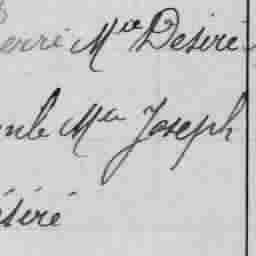 erré Mie Désiré
Mia Joseph
ésiré